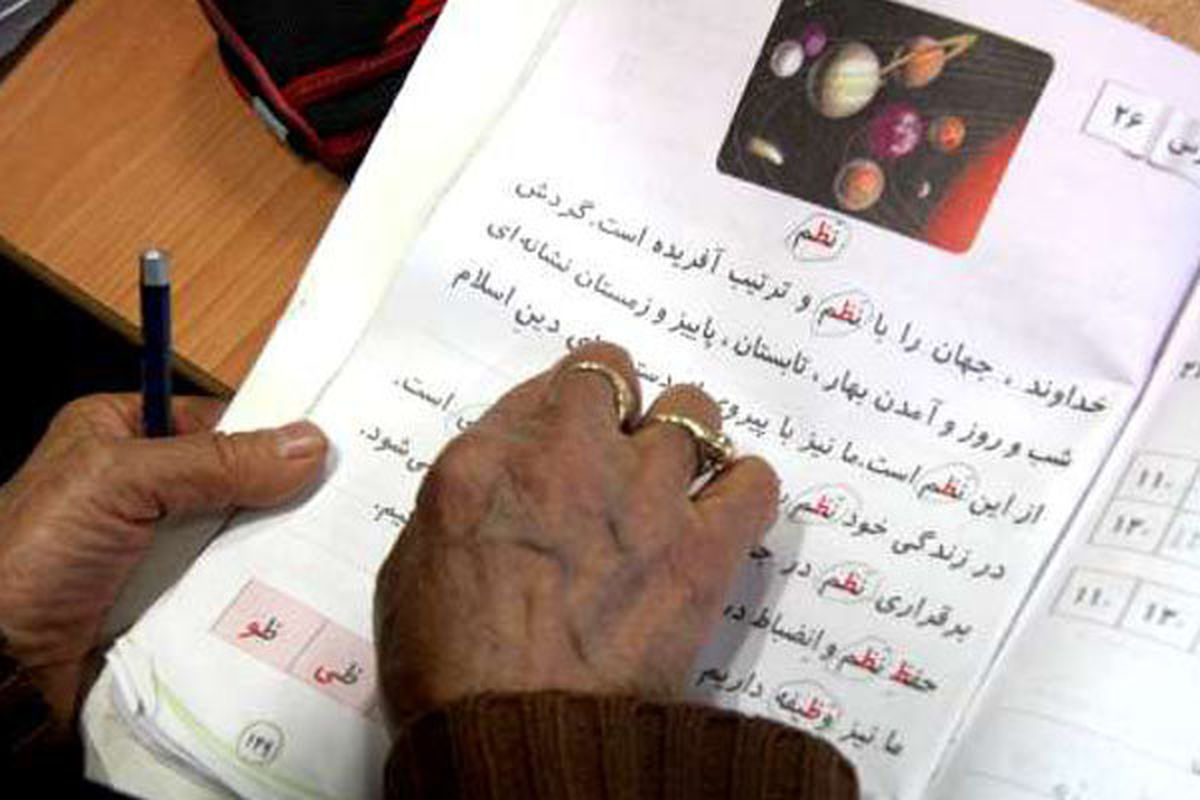 ۲۶
نظم
خداوند، جهان را با نظم و ترتیب آفریده است. گردش
شب و روز و آمدن بهار، تابستان، پاییز و زمستان نشانه‌ای
از این نظم است. ما نیز با پیروی دین اسلام
در زندگی خود نظم است.
برقراری نظم در می‌شود.
حفظ نظم و انضباط در
ما نیز وظیفه داریم
ظی ظو
۱۲۹
۱۱۰
۱۳۰
۱۱۰ ۱۳۰